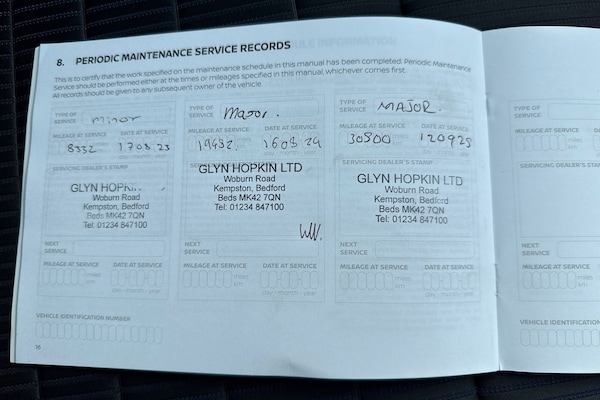 8. PERIODIC MAINTENANCE SERVICE RECORDS
This is to certify that the work specified on the maintenance schedule in this manual has been completed. Periodic Maintenance
Service should be performed either at the times or mileages specified in this manual, whichever comes first.
All records should be given to any subsequent owner of the vehicle.
TYPE OF
SERVICE
Minor
MILEAGE AT SERVICE DATE AT SERVICE
8332 170823
SERVICING DEALER'S STAMP
GLYN HOPKIN
Woburn Road
Kempston, Bedford
Beds MK42 7QN
Tel: 01234 847100
NEXT
SERVICE
MILEAGE AT SERVICE DATE AT SERVICE
miles
km
day - month - year
TYPE OF
SERVICE
Major.
MILEAGE AT SERVICE DATE AT SERVICE
19432 160824
GLYN HOPKIN LTD
Woburn Road
Kempston, Bedford
Beds MK42 7QN
Tel: 01234 847100
NEXT
SERVICE
MILEAGE AT SERVICE DATE AT SERVICE
miles
km
day - month - year
TYPE OF
SERVICE
MAJOR.
MILEAGE AT SERVICE DATE AT SERVICE
30500 120925
SERVICING DEALER'S STAMP
GLYN HOPKIN LTD
Woburn Road
Kempston, Bedford
Beds MK42 7QN
Tel: 01234 847100
NEXT
SERVICE
MILEAGE AT SERVICE DATE AT SERVICE
miles
km
day - month - year
VEHICLE IDENTIFICATION NUMBER
16
TYPE OF
SERVICE
MILEAGE AT SERVICE
SERVICING DEALER'S
NEXT
SERVICE
MILEAGE AT SERVICE
VEHICLE IDENTIFICATION